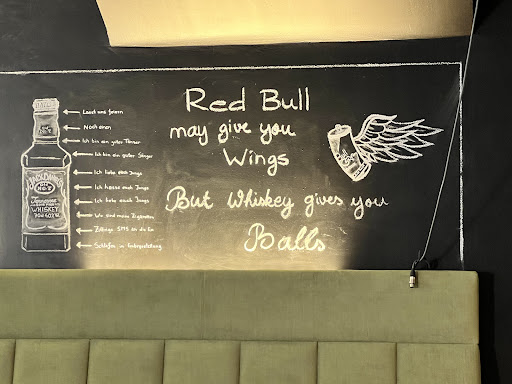 Lasst uns feiern
Noch einen
Ich bin ein guter Tänzer
Ich bin ein guter Sänger
Ich liebe euch Jungs
Ich hasse euch Jungs
Ich liebe euch Jungs
Wo sind meine Zigaretten
SMS an die Ex
Schlafen in
JACK DANIEL'S
OLD
No. 7
Tennessee
WHISKEY
Red Bull
may give you
Wings
But Whiskey gives you
Balls